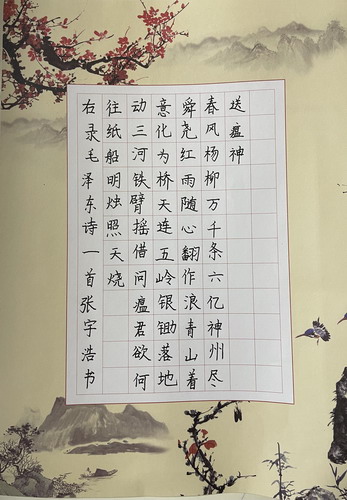 送瘟神
春风杨柳万千条六亿神州尽
舜尧红雨随心翻作浪青山着
意化为桥天连五岭银锄落地
动三河铁臂摇借问瘟君欲何
往纸船明烛照天烧
右录毛泽东诗一首张宇浩书